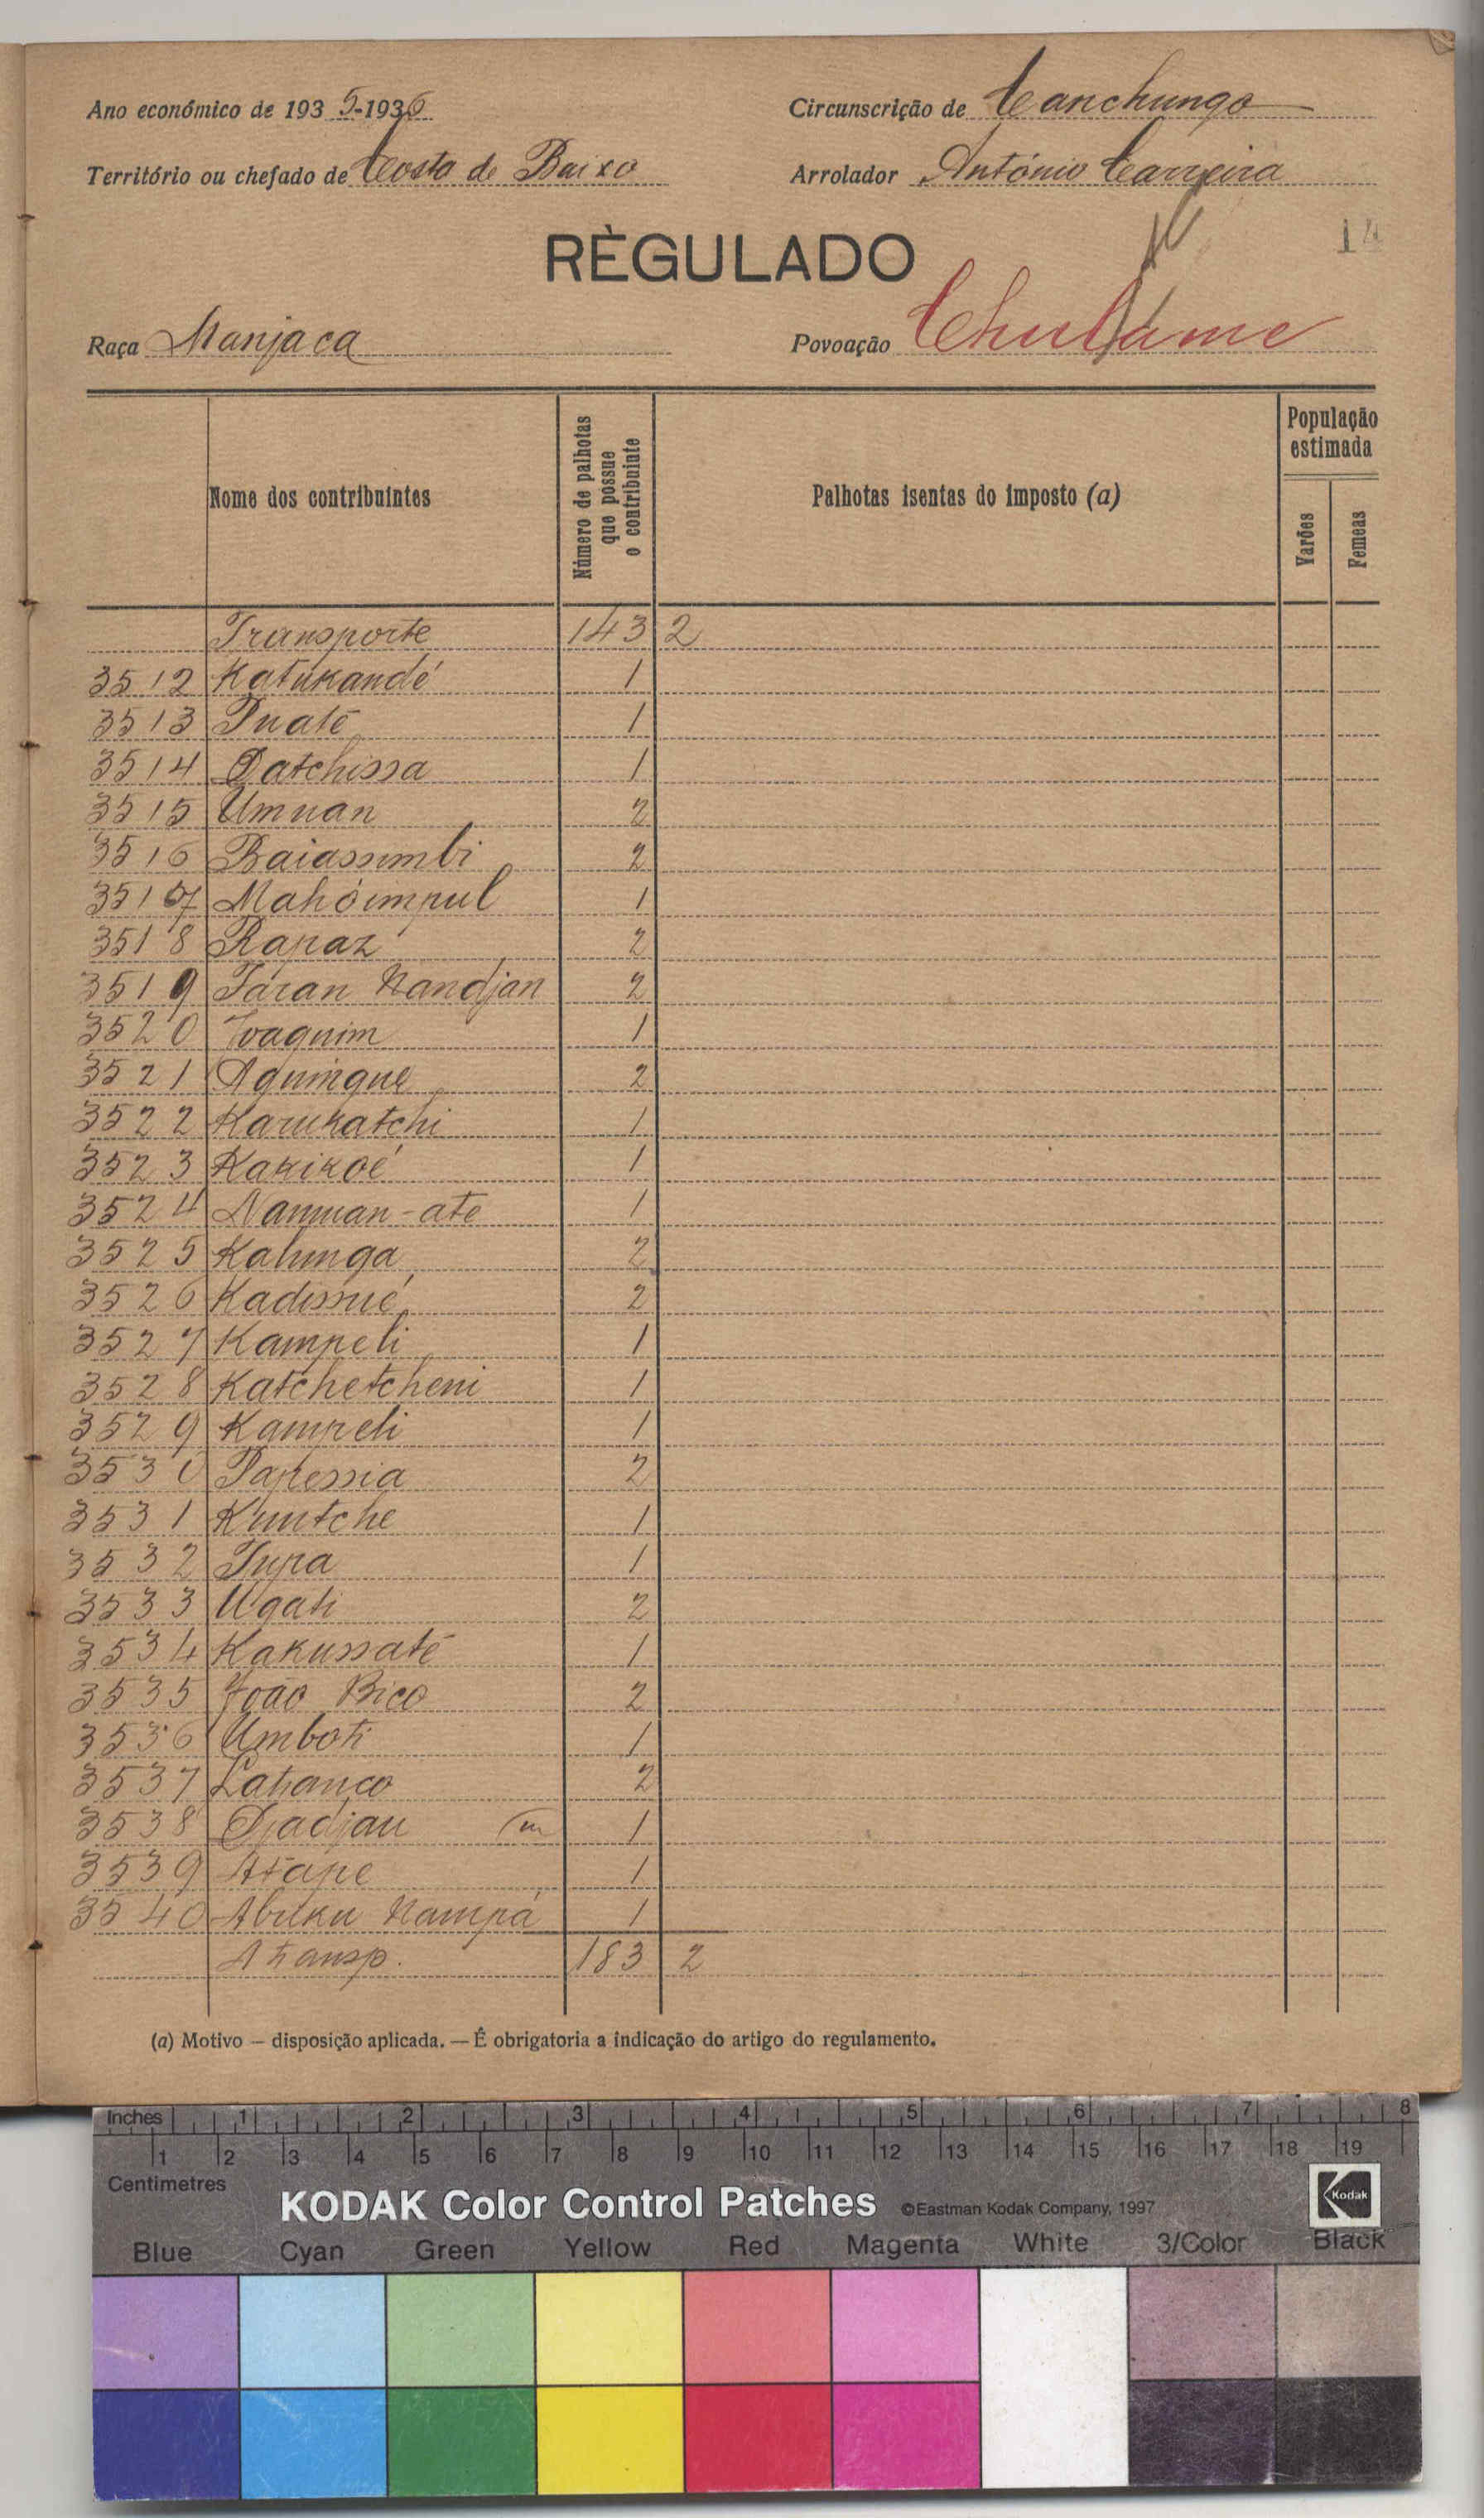 Ano económico de 1935-1936 Circunscrição de Canchungo
Território ou chefado de Costa de Baixo Arrolador António Carreira
RÈGULADO 14
Raça Manjaca Povoação Chulame
Nome dos contribuintes Número de palhotas que possue o contribuinte Palhotas isentas do imposto (a) População estimada Varões Femeas
Transporte 143 2
3512 Katukandé 1
3513 Puate 1
3514 Datchissa 1
3515 Umuan 2
3516 Baiassimbi 2
3517 Mahóimpul 1
3518 Rapaz 2
3519 Táran Nandjan 2
3520 Joaquim 1
3521 Aguingue 2
3522 Karukatchi 1
3523 Kakikoé 1
3524 Namuan-ate 1
3525 Kalinga 2
3526 Kadissué 2
3527 Kampeli 1
3528 Katchetcheni 1
3529 Kampeli 1
3530 Papessia 2
3531 Kuntche 1
3532 Tupa 1
3533 Ugati 2
3534 Kakussaté 1
3535 João Bico 2
3536 Umboti 1
3537 Latranco 2
3538 Djadjau m 1
3539 Atape 1
3540 Abuku Nampá 1
A transp. 183 2
(a) Motivo — disposição aplicada. — É obrigatoria a indicação do artigo do regulamento.
Inches 1 2 3 4 5 6 7 8
1 2 3 4 5 6 7 8 9 10 11 12 13 14 15 16 17 18 19
Centimetres
KODAK Color Control Patches ©Eastman Kodak Company, 1997 Kodak
Blue Cyan Green Yellow Red Magenta White 3/Color Black